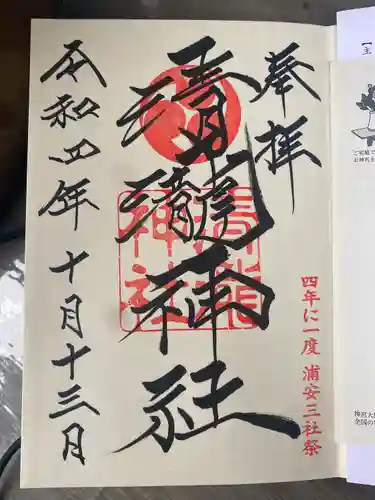 奉拝
清瀧神社
清瀧神社
令和四年十月十三日
四年に一度 浦安三社祭
【主
神宮大
全国の